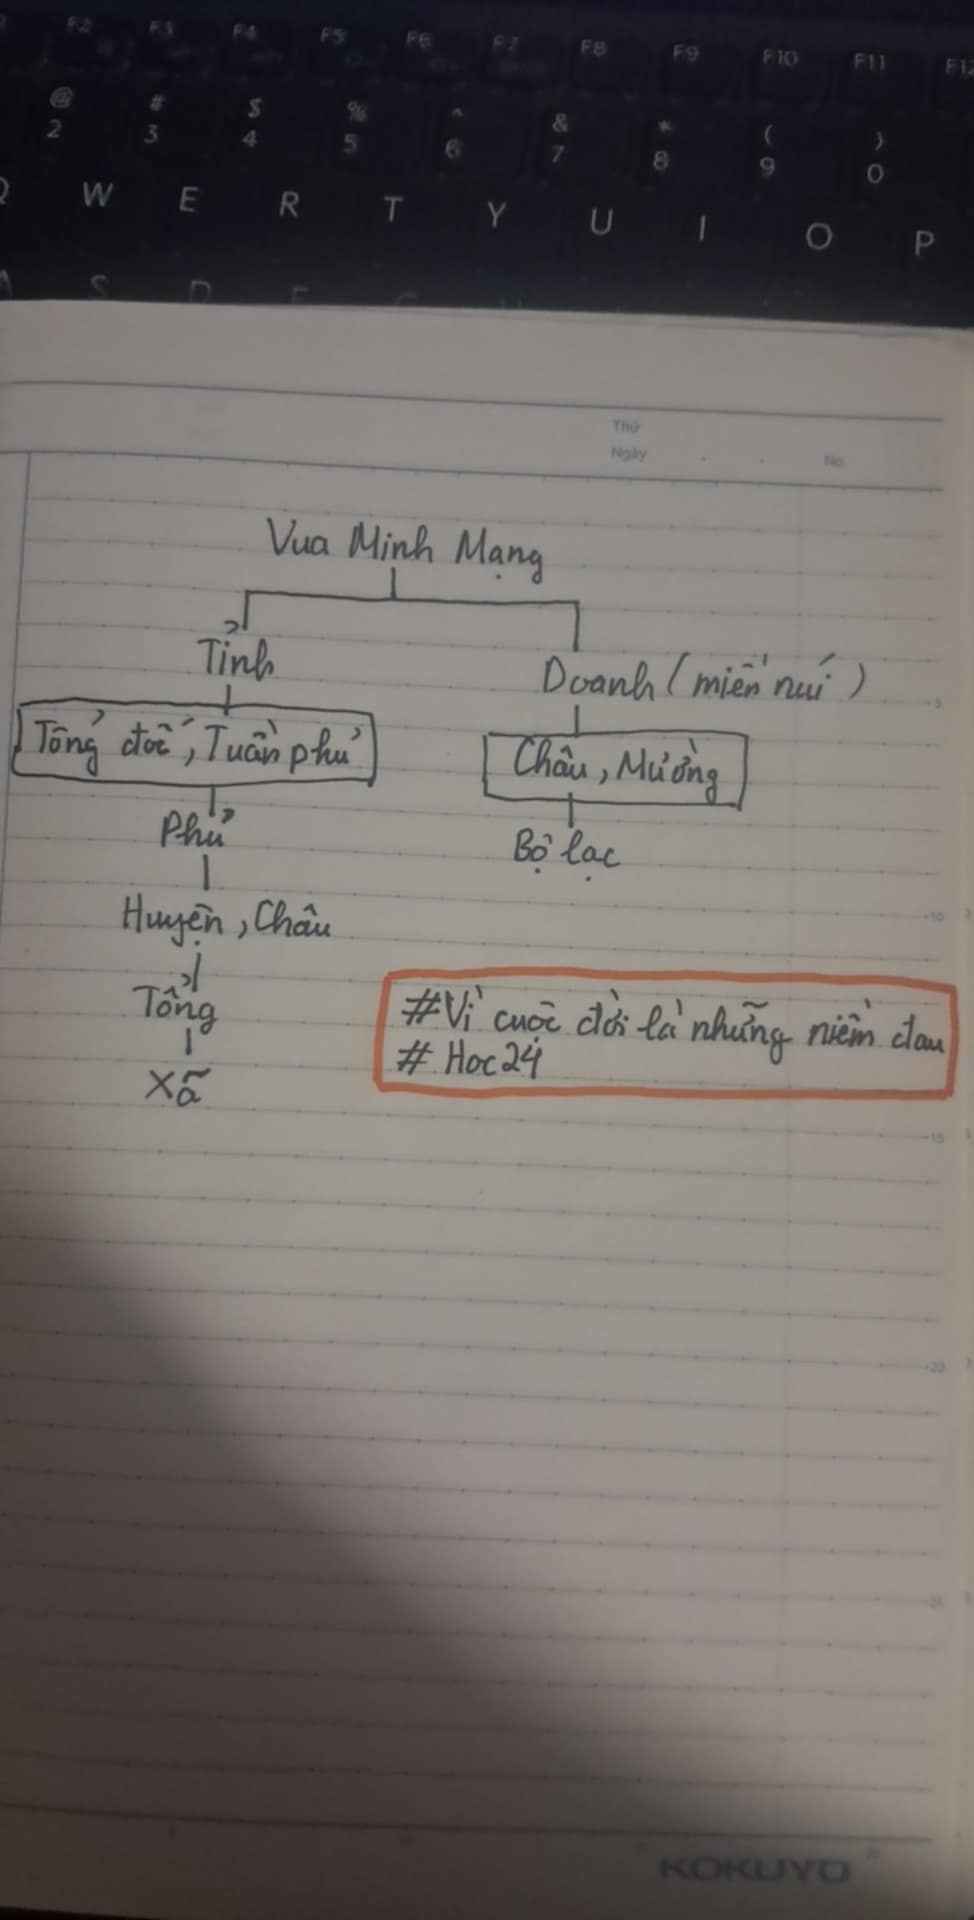 F2 F3 F4 F5 F6 F7 F8 F9 F10 F11 F12
@ # $ % ^ & * ( )
2 3 4 5 6 7 8 9 0
Q W E R T Y U I O P
A S D F G H
Thứ
Ngày . . No.
Vua Minh Mạng
Tỉnh
Doanh (miền núi)
Tổng đốc, Tuần phủ
Châu, Mường
Phủ
Bộ lạc
Huyện, Châu
Tổng
Xã
#Vì cuộc đời là những niềm đau
# Hoc24
5
10
15
20
25
KOKUYO